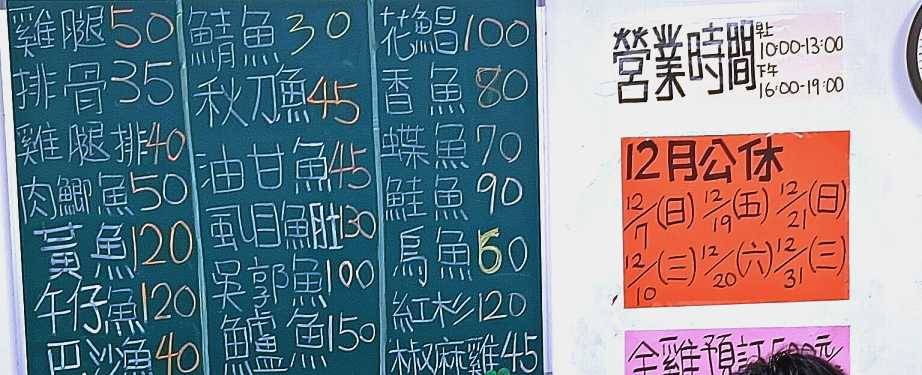 雞腿50
排骨35
雞腿排40
肉鯽魚50
黃魚120
午仔魚120
巴沙魚40
鯖魚30
秋刀魚45
油甘魚45
虱目魚肚130
吳郭魚100
鱸魚150
花鯧100
香魚80
鰈魚70
鮭魚90
烏魚60
紅杉120
椒麻雞45
營業時間
早上
10:00-13:00
下午
16:00-19:00
12月公休
12/7(日) 12/19(五) 12/21(日)
12/10(三) 12/20(六) 12/31(三)
全雞預訂500元